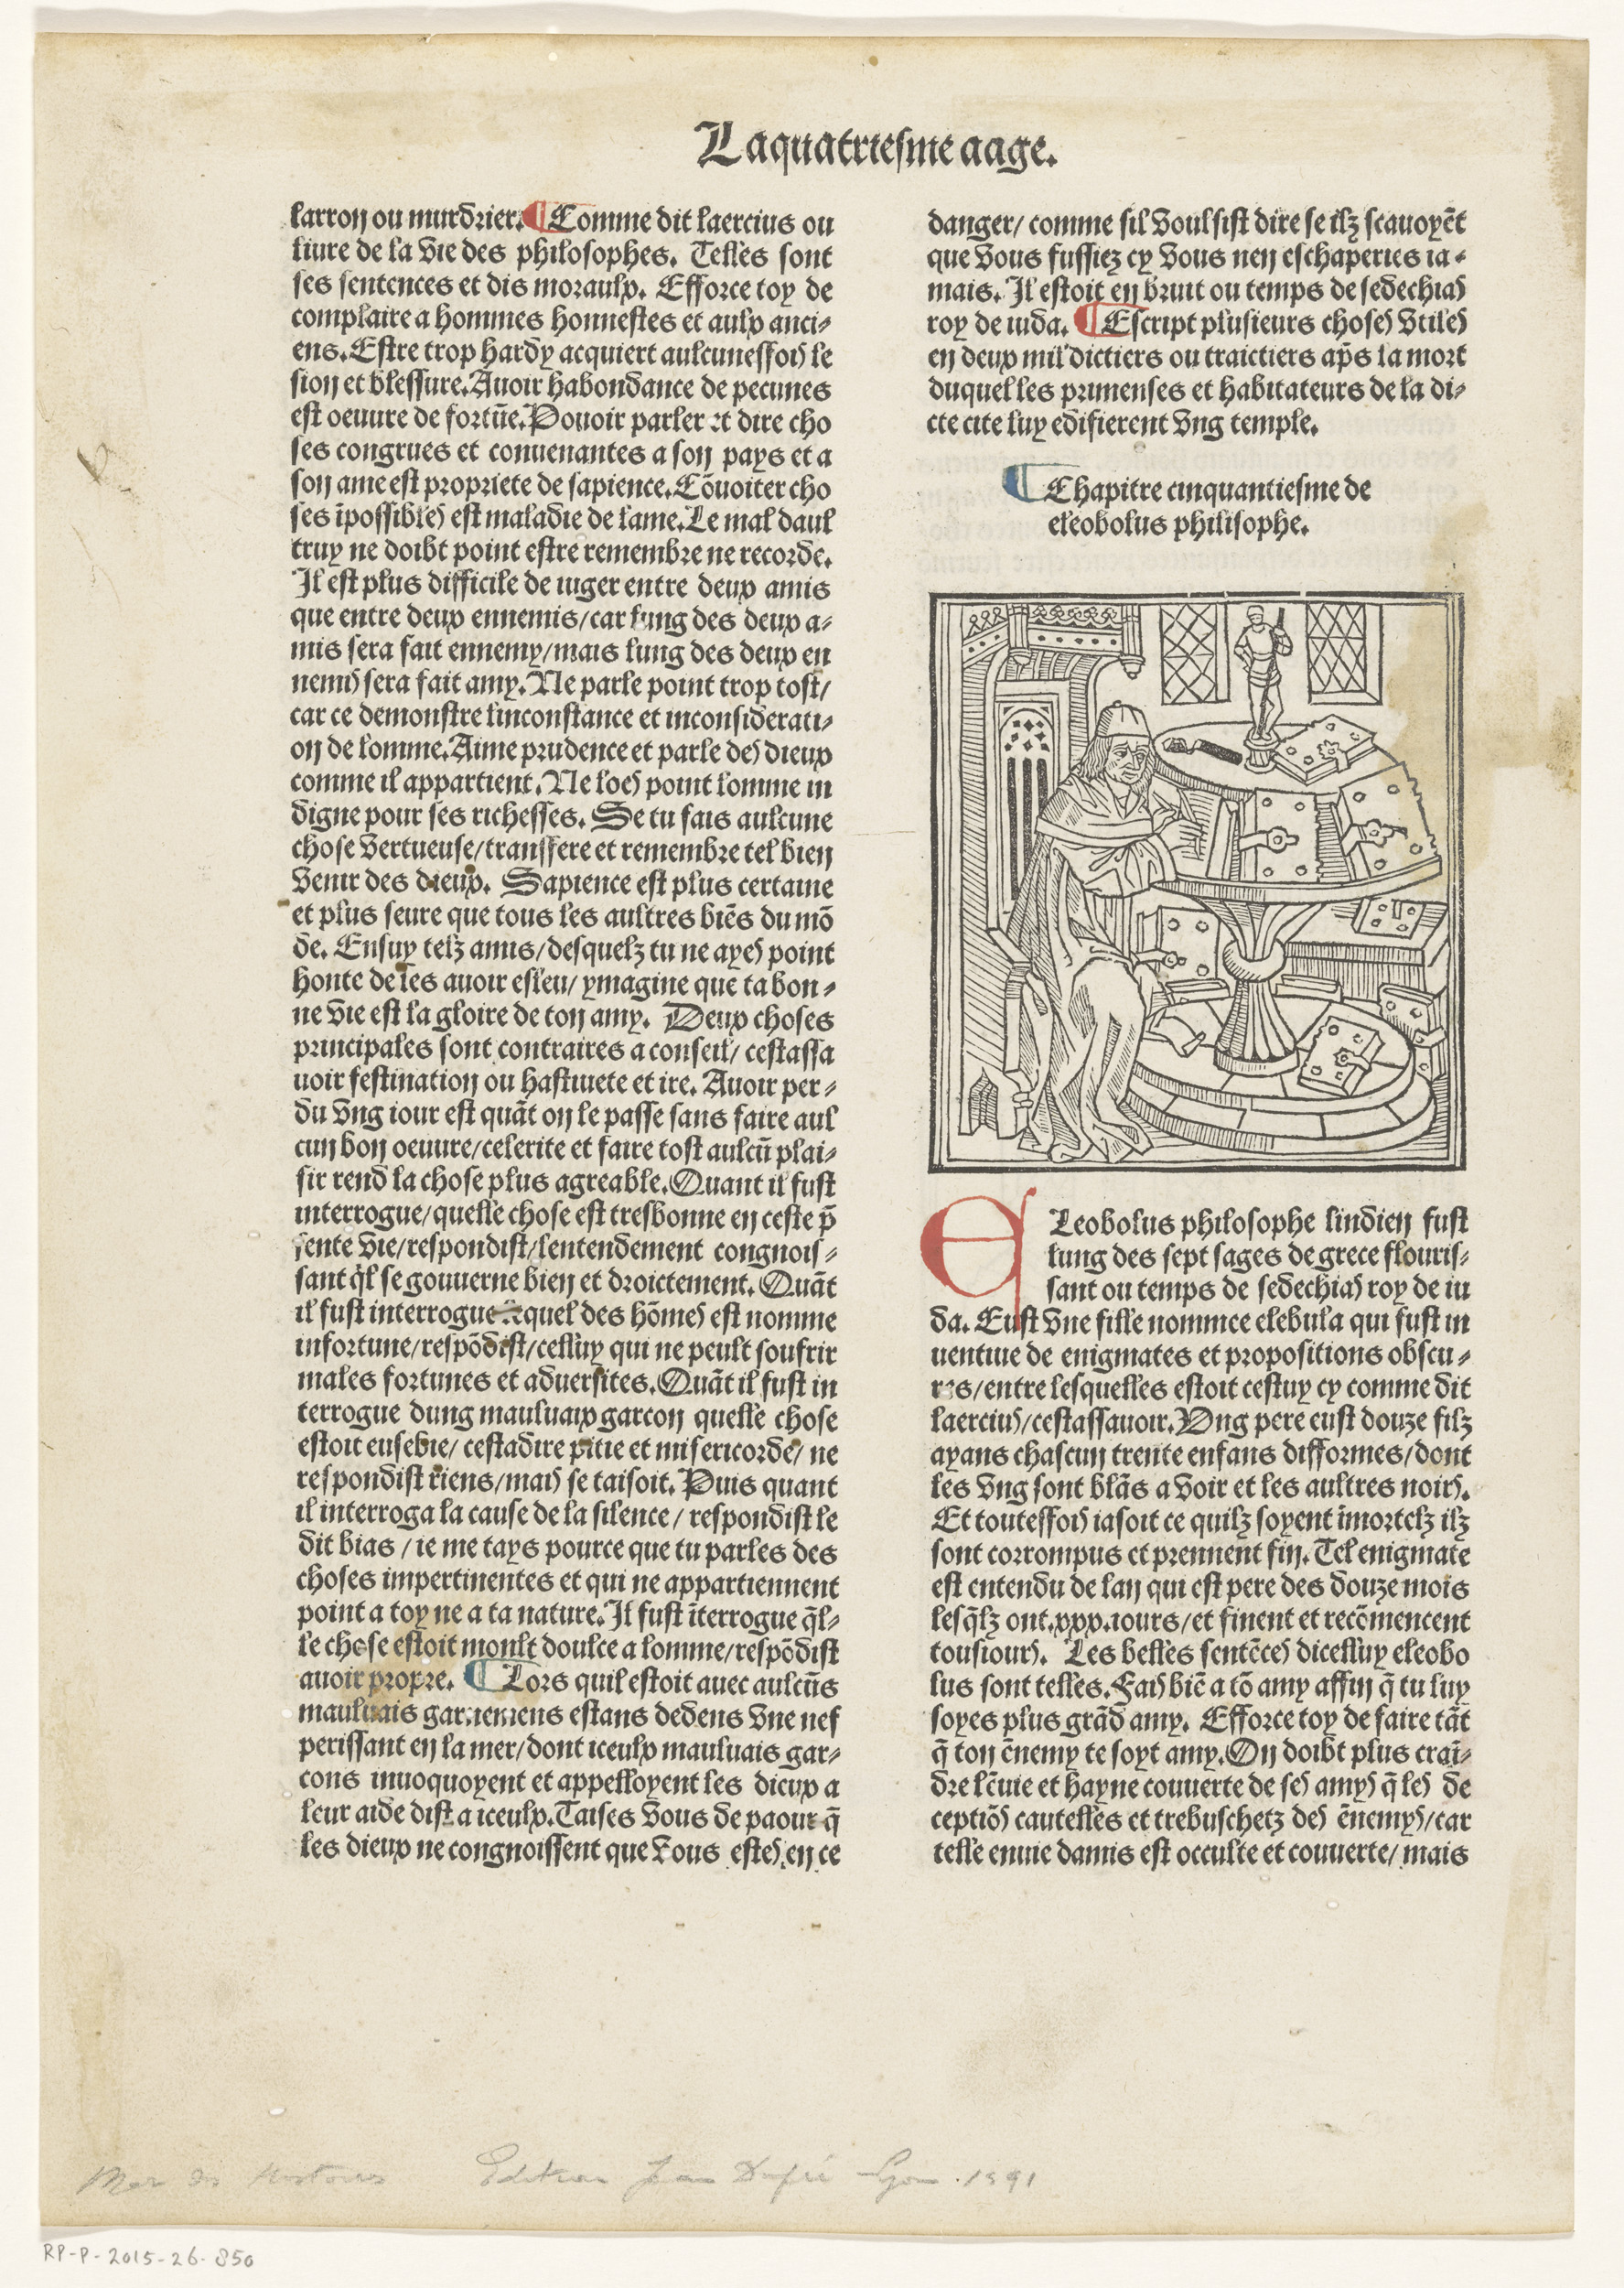 Laquatriesme aage.
larron ou murdrier. ¶ Comme dit laercius ou
liure de la vie des philosophes. Telles sont
ses sentences et dis moraulx. Efforce toy de
complaire a hommes honnestes et aulx anci⸗
ens. Estre trop hardy acquiert aulcuneffois le
sion et blessure. Auoir habondance de pecunes
est oeuure de fortūe. Pouoir parler et dire cho
ses congrues et conuenantes a son pays et a
son ame est propriete de sapience. Cōuoiter cho
ses īpossibles est maladie de lame. Le mal daul
truy ne doibt point estre remembre ne recorde.
Il est plus difficile de iuger entre deux amis
que entre deux ennemis/ car lung des deux a⸗
mis sera fait ennemy/ mais lung des deux en
nemis sera fait amy. Ne parle point trop tost/
car ce demonstre linconstance et inconsiderati⸗
on de lomme. Aime prudence et parle des dieux
comme il appartient. Ne loes point lomme in
digne pour ses richesses. Se tu fais aulcune
chose vertueuse/ transfere et remembre tel bien
venir des dieux. Sapience est plus certaine
et plus seure que tous les aultres biēs du mō
de. Ensuy telz amis/ desquelz tu ne ayes point
honte de les auoir esleu/ ymagine que ta bon⸗
ne vie est la gloire de ton amy. Deux choses
principales sont contraires a conseil/ cestassa
uoir festination ou hastiuete et ire. Auoir per⸗
du vng iour est quāt on le passe sans faire aul
cun bon oeuure/ celerite et faire tost aulcū plai⸗
sir rend la chose plus agreable. Quant il fust
interrogue/ quelle chose est tresbonne en ceste p̄
sente vie/ respondist/ lentendement congnois⸗
sant q̄l se gouuerne bien et droictement. Quāt
il fust interrogue quel des hōmes est nomme
infortune/ respōdist/ celluy qui ne peult soufrir
males fortunes et aduersites. Quāt il fust in
terrogue dung mauluaix garcon quelle chose
estoit eusebie/ cestadire pitie et misericorde/ ne
respondist riens/ mais se taisoit. Puis quant
il interroga la cause de la silence/ respondist le
dit bias/ ie me tays pource que tu parles des
choses impertinentes et qui ne appartiennent
point a toy ne a ta nature. Il fust īterrogue q̄l⸗
le chose estoit moult doulce a lomme/ respōdist
auoir propre. ¶ Lors quil estoit auec aulcūs
mauluais garnemens estans dedens vne nef
perissant en la mer/ dont iceulx mauluais gar⸗
cons inuoquoyent et appelloyent les dieux a
leur aide dist a iceulx. Taises vous de paour q̄
les dieux ne congnoissent que vous estes en ce
danger/ comme sil voulsist dire se ilz scauoyēt
que vous fussiez cy vous nen eschaperies ia⸗
mais. Il estoit en bruit ou temps de sedechias
roy de iuda. ¶ Escript plusieurs choses vtiles
en deux mil dictiers ou traictiers ap̄s la mort
duquel les primenses et habitateurs de la di⸗
cte cite luy edifierent vng temple.
¶ Chapitre cinquantiesme de
cleobolus philisophe.
Cleobolus philosophe lindien fust
lung des sept sages de grece flouris⸗
sant ou temps de sedechias roy de iu
da. Eust vne fille nommee clebula qui fust in
uentiue de enigmates et propositions obscu⸗
res/ entre lesquelles estoit cestuy cy comme dit
laercius/ cestassauoir. Vng pere eust douze filz
ayans chascun trente enfans difformes/ dont
les vng sont blās a voir et les aultres noirs.
Et touteffois iasoit ce quilz soyent īmortelz ilz
sont corrompus et prennent fin. Tel enigmate
est entendu de lan qui est pere des douze mois
lesq̄lz ont .xxx. iours/ et finent et recōmencent
tousiours. Les belles sentēces dicelluy cleobo
lus sont telles. Fais biē a tō amy affin q̄ tu luy
soyes plus grād amy. Efforce toy de faire tāt
q̄ ton ēnemy te soyt amy. On doibt plus craī⸗
dre lēuie et hayne couuerte de ses amys q̄ les de
ceptiōs cautelles et trebuschetz des ēnemys/ car
telle enuie damis est occulte et couuerte/ mais
Mer des histoires Edition Jean Dupré Lyon. 1491
RP-P-2015-26-850